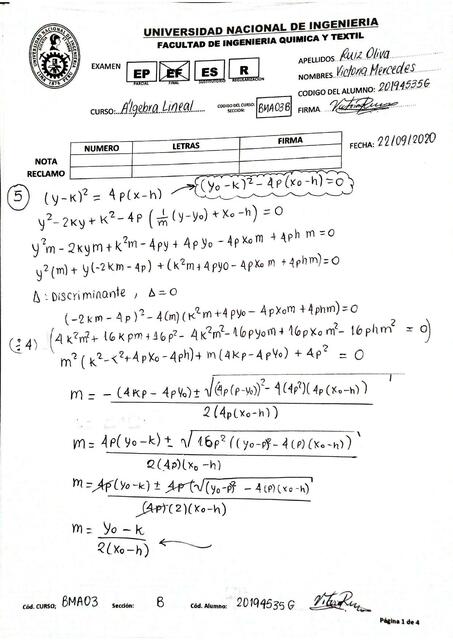 UNIVERSIDAD NACIONAL DE INGENIERIA
FACULTAD DE INGENIERIA QUIMICA Y TEXTIL
EXAMEN EP EF ES R
PARCIAL FINAL SUSTITUTORIO
APELLIDOS Ruiz Oliva
NOMBRES Victoria Mercedes
CODIGO DEL ALUMNO: 20194535G
CURSO: Álgebra Lineal CODIGO DEL CURSO: SECCIÓN: BMA03B FIRMA
NUMERO LETRAS FIRMA
FECHA: 22/09/2020
NOTA
RECLAMO
5 (y-k)² = 4p(x-h) → (y₀-k)² - 4p(x₀-h) = 0
y² - 2ky + k² - 4p (1/m (y-y₀) + x₀-h) = 0
y²m - 2kym + k²m - 4py + 4py₀ - 4px₀m + 4phm = 0
y²(m) + y(-2km - 4p) + (k²m + 4py₀ - 4px₀m + 4phm) = 0
Δ: Discriminante, Δ=0
(-2km - 4p)² - 4(m)(k²m + 4py₀ - 4px₀m + 4phm) = 0
(÷4) (4k²m² + 16kpm + 16p² - 4k²m² - 16py₀m + 16px₀m² - 16phm² = 0)
m²(k² - k² + 4px₀ - 4ph) + m(4kp - 4py₀) + 4p² = 0
m = -(4kp - 4py₀) ± √((4p(p-y₀))² - 4(4p²)(4p(x₀-h))) / 2(4p(x₀-h))
m = 4p(y₀-k) ± √(16p²((y₀-p)² - 4(p)(x₀-h))) / 2(4p)(x₀-h)
m = 4p(y₀-k) ± 4p(√((y₀-p)² - 4(p)(x₀-h))) / (4p)(2)(x₀-h)
m = y₀ - k / 2(x₀-h) ←
Cód. CURSO; BMA03 Sección: B Cód. Alumno: 20194535G
Página 1 de 4